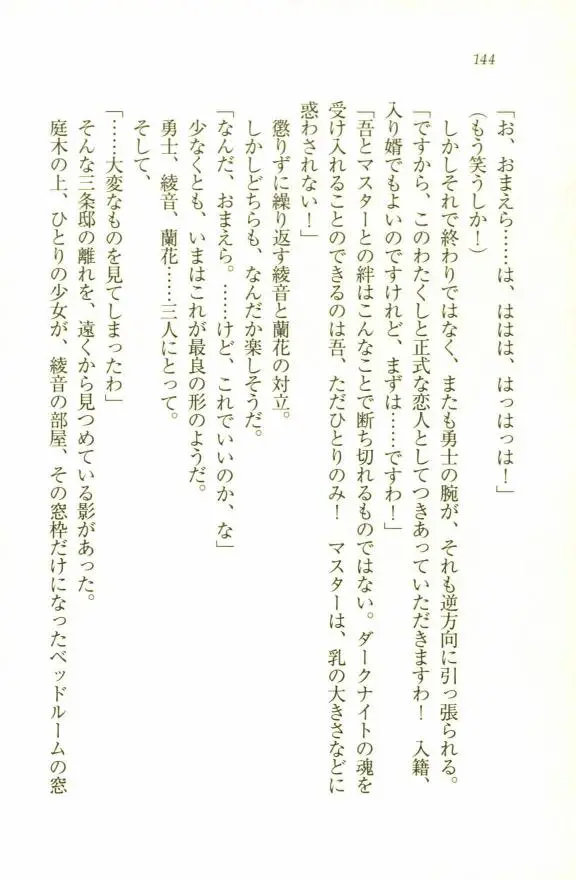 144
「お、おまえら……は、ははは、はっはっは！」
（もう笑うしか！）
しかしそれで終わりではなく、またも勇士の腕が、それも逆方向に引っ張られる。
「ですから、このわたくしと正式な恋人としてつきあっていただきますわ！　入籍、
入り婿でもよいのですけれど、まずは……ですわ！」
「吾とマスターとの絆はこんなことで断ち切れるものではない。ダークナイトの魂を
受け入れることのできるのは吾、ただひとりのみ！　マスターは、乳の大きさなどに
惑わされない！」
懲りずに繰り返す綾音と蘭花の対立。
しかしどちらも、なんだか楽しそうだ。
「なんだ、おまえら。……けど、これでいいのか、な」
少なくとも、いまはこれが最良の形のようだ。
勇士、綾音、蘭花……三人にとって。
そして、
「……大変なものを見てしまったわ」
そんな三条邸の離れを、遠くから見つめている影があった。
庭木の上、ひとりの少女が、綾音の部屋、その窓枠だけになったベッドルームの窓